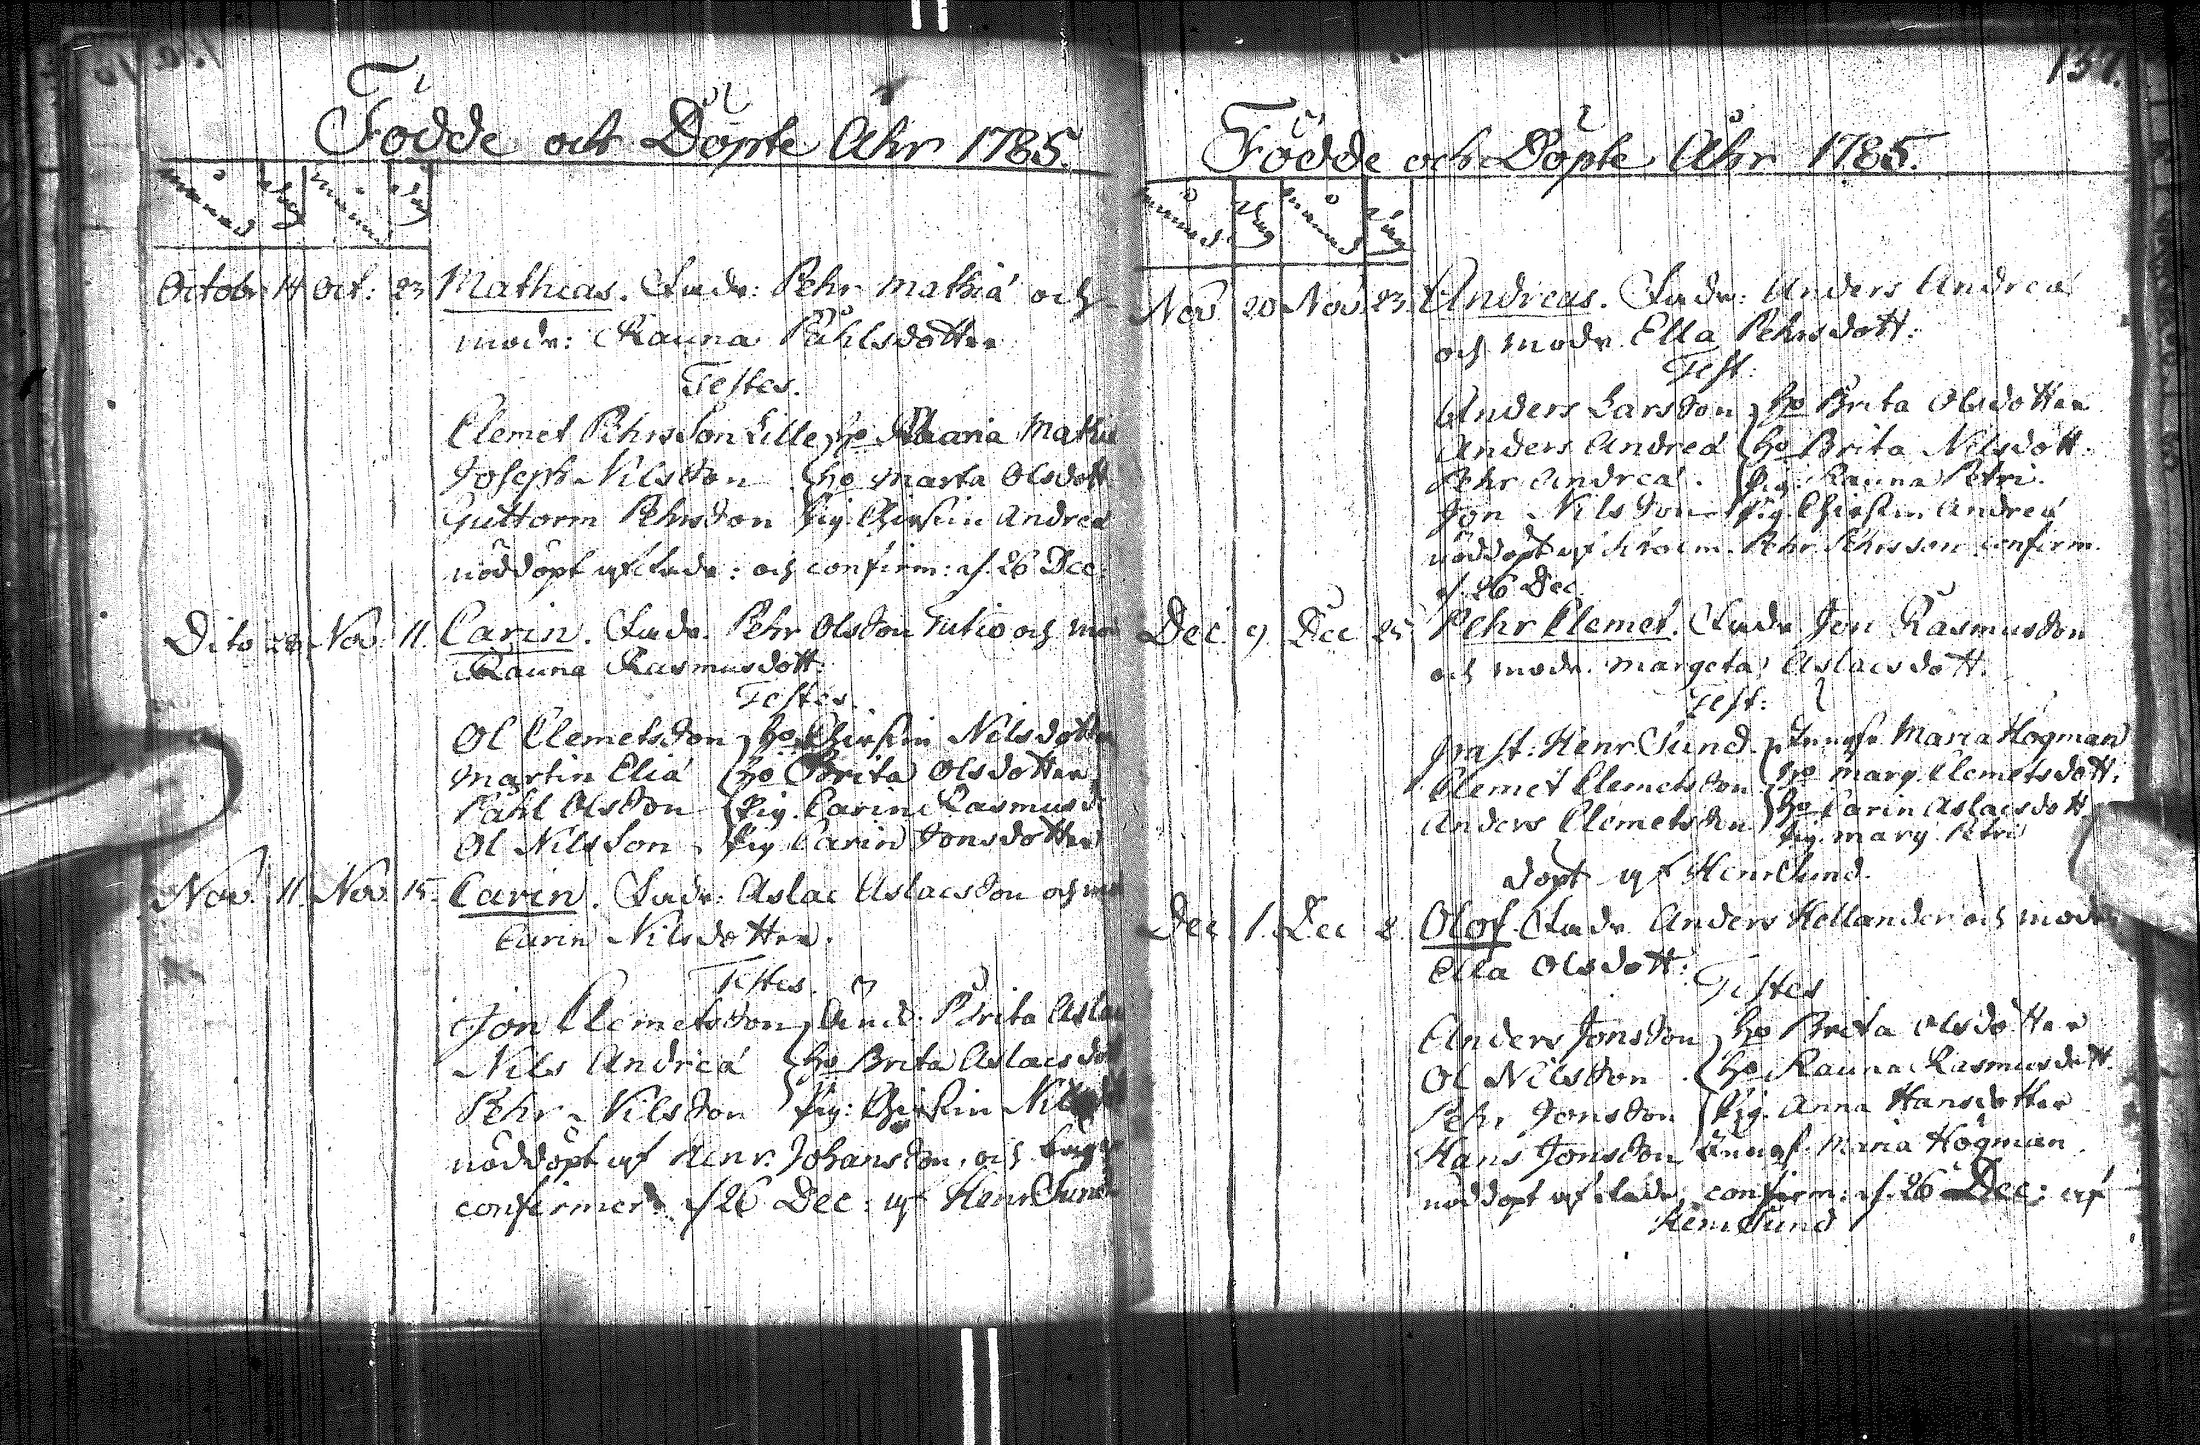 Födde och Döpte Åhr 1785.
månad dag månad dag
Octobr 14 Oct: 23 Mathias. Fadr: Pehr Mathiæ och
modr: Rauna Påhlsdotter
Testes.
Clemet Pehrsson Lille, ho Maria Mathiæ
Joseph Nilsson ho Marta Olsdott
Guttorm Pehrsson Pig. Chirstin Andreæ
nöddöpt af fadr: och confirm: d. 26 Dec:
Dito 28 Nov. 11. Carin. Fadr. Pehr Olsson Tutio och mo
Rauna Rasmusdott:
Testes.
Ol Clemetsson ho Chirstin Nilsdotter
Martin Eliæ ho Brita Olsdotter
Påhl Olsson Pig. Carin Rasmusd
Ol Nilsson Pig Carin Jonsdotter
Nov. 11. Nov. 15. Carin. Fadr: Aslac Aslacsson och mo
Carin Nilsdotter.
Testes.
Jon Clemetsson, Änk: Brita Aslac
Nils Andreæ ho Brita Aslacsdott
Pehr Nilsson Pig: Chirstin Nilsd
nöddöpt af Henr. Johansson, och
confirmer: d 26 Dec: af Henr Sund
137.
Födde och Döpte Åhr 1785.
månad dag månad dag
Nov. 20 Nov. 23. Andreas. Fadr: Anders Andreæ
och modr Ella Pehrsdott:
Test:
Anders Larsson, ho Brita Olsdotter
Anders Andreæ ho Brita Nilsdott.
Pehr Andreæ. Pig: Rauna Petri.
Jon Nilsson Pig Chirstin Andreæ
nöddöpt af Pehr Pehrsson confirm.
d. 26 Dec.
Dec. 9 Dec 25 Pehr Clemet. Fadr Jon Rasmusson
och modr. Margeta Aslacsdott.
Test:
Past: Henr Sund. Jungfr Maria Högman
Clemet Clemetsson ho Marg. Clemetsdott.
Anders Clemetsson ho Carin Aslacsdott
Pig. Marg. Petri
döpt af Henr Sund.
Dec. 1. Dec 2. Olof. Fadr Anders Hellander och modr
Ella Olsdott:
Testes
Anders Jonsson, ho Brita Olsdotter
Ol Nilsson. ho Rauna Rasmusdott.
Pehr Jonsson Pig. Anna Hansdotter
Hans Jonsson Jungf. Maria Högman
nöddöpt af fadr, confirm: d. 26 Dec: af
Henr Sund